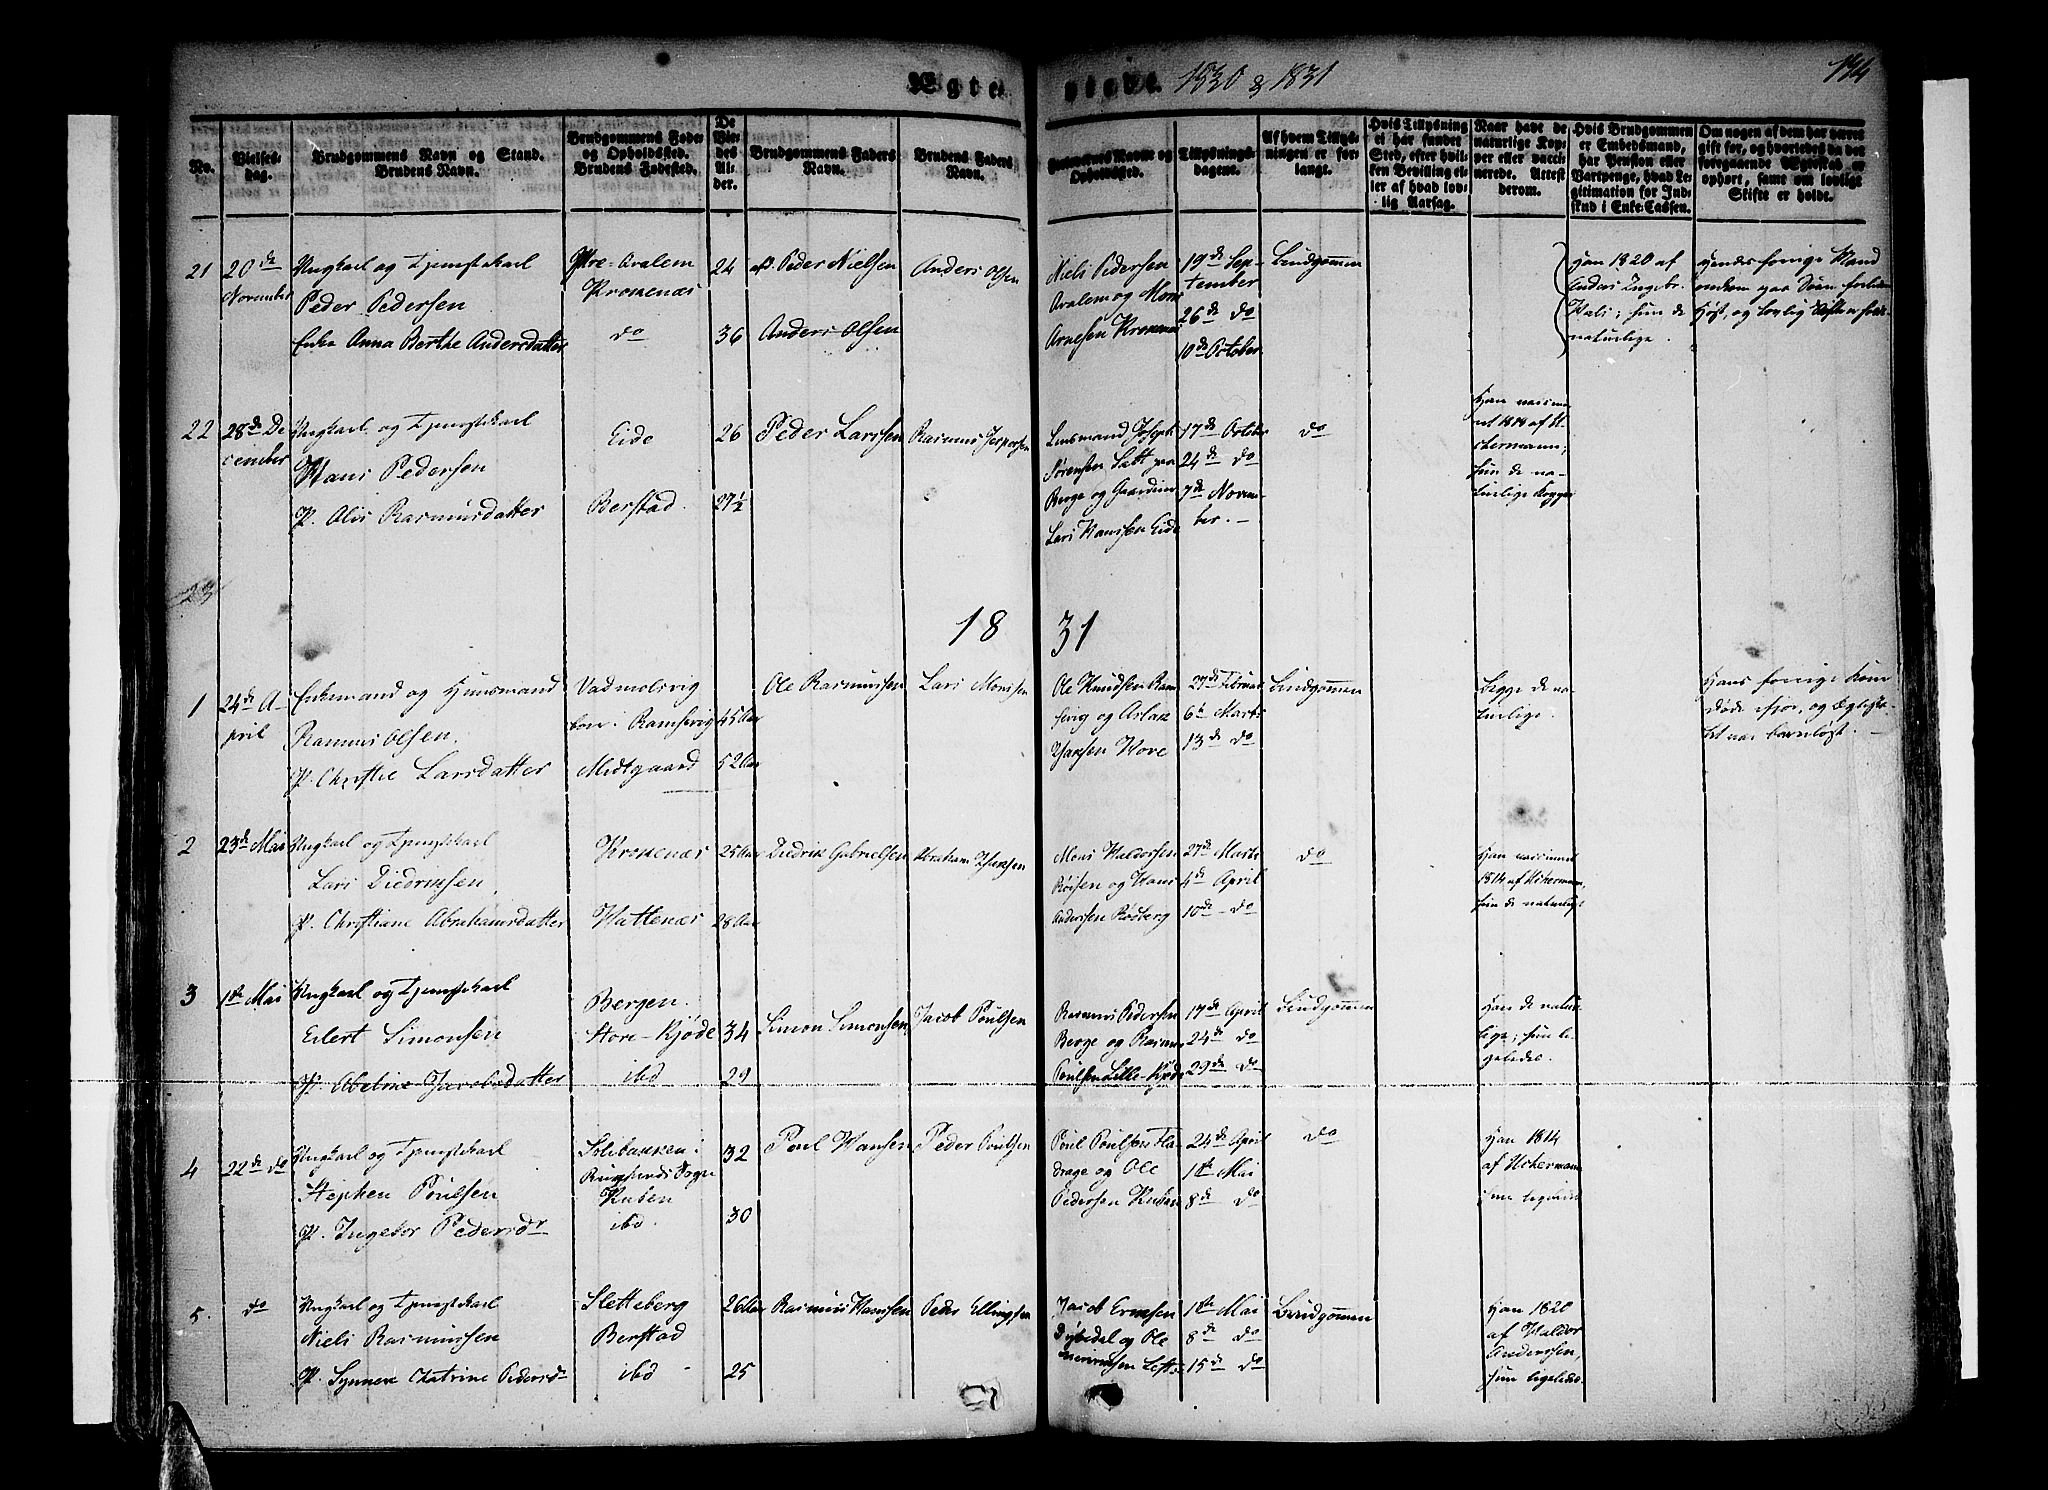 Ægte
1830 & 1831
194
No.
Vielses-
dag.
Brudgommens Navn og Stand.
Brudens Navn.
Brudgommens Føde-
og Opholdssted.
Brudens Fødested.
De
Vie-
des
Al-
der.
Brudgommens Faders
Navn.
Brudens Faders
Navn.
Forlovernes Navne og
Opholdssted.
Tillysnings-
dagene.
Af hvem Tillys-
ningen er for-
langt.
Hvis Tillysning
ei har fundet
Sted, efter hvil-
ken Bevilling el-
ler af hvad lov-
lig Aarsag.
Naar have de
naturlige Kop-
per eller vacci-
nerede. Attest
derom.
Hvis Brudgommen
er Embedsmand,
har Pension eller
Vartpenge, hvad Le-
gitimation for Ind-
skud i Enke-Cassen.
Om nogen af dem har været
gift før, og hvorledes da det
foregaaende Ægteskab er
ophørt, samt om lovligt
Skifte er holdt.
21
20de
November
Ungkarl og Tjenestekarl
Peder Pedersen
Enke Anna Berthe Andersdatter
Avalem
Kronenæs
do
24
36
Peder Nielsen
Anders Olsen
Anders Olsen
Niels Pedersen
Avalem og Mons
Arnesen
19de Sep-
tember
26de do
10de October
Brudgommen
Han 1820 af
Anders
hun de
naturlige.
Hendes forrige Mand
omkom paa Søen
Høst, og lovlig Skifte
22
28de De
cember
Ungkarl og Tjenestekarl
Hans Pedersen
P. Alis Rasmusdatter
Eide
Berstad.
26
27½
Peder Larssen
Rasmus Jespersen
Lensmand Joseph
Sørensen
Berge og Gaardm
Lars Hanssen Eide
17de October
24de do
7de Novem-
ber.
do
Han vaccine-
ret
hun de na-
turlige Kopper
23
18 31
1
24de A-
pril
Enkemand og Huusmand
Rasmus Olsen.
P. Christie Larsdatter
Vadmolsvig
boe. i Ramsevig
Midtgaard
45 Aar
52 Aar
Ole Rasmussen
Lars Monssen
Ole Knudsen Ram
sevig og Aslak
Hansen Hove
27de Februar
6te Marts
13de do
Brudgommen
Begge de na-
turlige.
Hans forrige Kone
døde ifjor, og Ægteska-
bet var barnløst.
2
23de Mai
Ungkarl og Tjenestekarl
Lars Diedriksen
P. Christiane Abrahamsdatter
Kronenæs
Hattenæs
25 Aar
28 Aar
Diedrik Gabrielsen
Abraham Hansen
Mons Haldorsen
Røisen og Hans
Anderssen Rødberg
27de Marts
4de April
10de do
do
Han vaccineret
1814 af Uckermann,
hun de naturlige
3
1ste Mai
Ungkarl og Tjenestekarl
Eilert Simonsen
P. Abeline Jacobsdatter
Bergen.
Store-Kjøde
ibd
34
29
Simon Simonsen
Jacob Poulsen
Rasmus Pedersen
Berge og Rasmus
Poulsen Lille-Kjøde
17de April
24de do
29de do
Brudgommen
Han de natur-
lige; hun li-
geledes.
4
22de do
Ungkarl og Tjenestekarl
Stephen Poulsen
P. Ingebor Pedersdr
Solibakken i
Sogn
Huken
ibd.
32
30
Poul Hansen
Peder Poulsen
Poul Poulsen Fla-
drage og Ole
Pedersen Huken
24de April
1ste Mai
8de do
do
Han 1814
af Uckermann
hun ligeledes
5.
do
Ungkarl og Tjenestekarl
Niels Rasmussen
P. Synneve Chatrine Pedersdr
Sletteberg
Berstad
ibd
26 Aar
25
Rasmus Hanssen
Peder Ellingsen
Jacob
og Ole
1ste Mai
8de do
15de do
Brudgommen
Han 1820
af Haldor
Anderssen,
hun ligeledes.